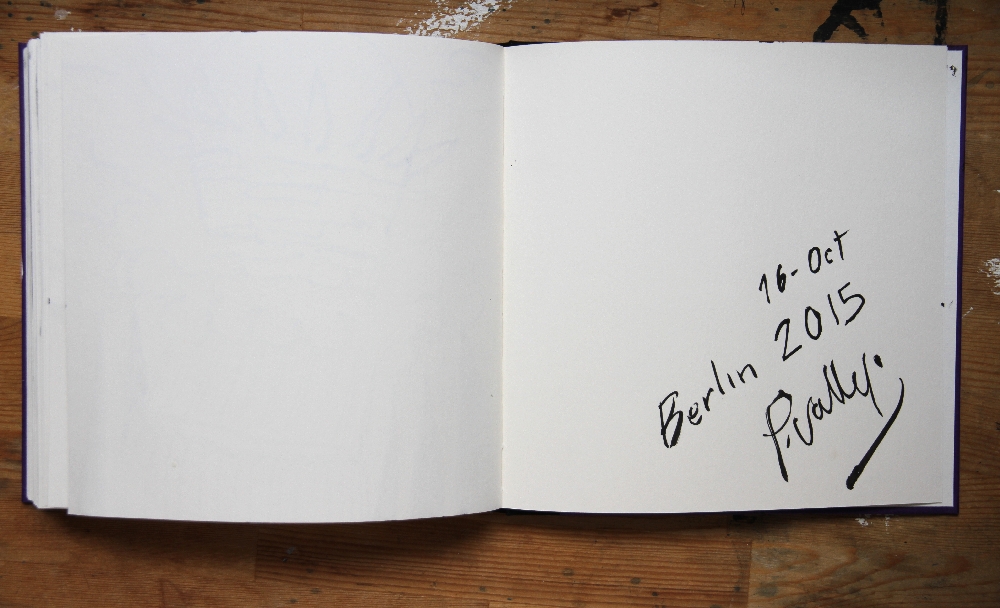 16-Oct
Berlin 2015
P.vally.